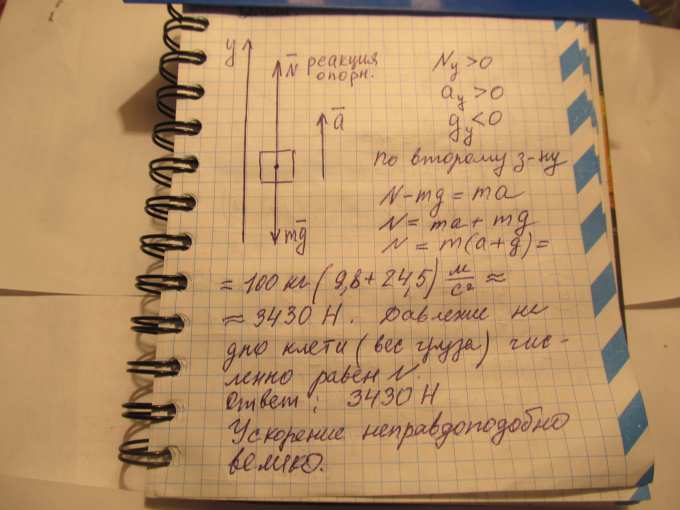 y
N̄ реакция
опорн.
ā
mḡ
Ny > 0
ay > 0
gy < 0
по второму з-ну
N - mg = ma
N = ma + mg
N = m(a+g) =
= 100 кг (9,8 + 24,5) м/с² ≈
≈ 3430 Н. Давление на
дно клети (вес груза) чис-
ленно равен N
Ответ: 3430 Н
Ускорение неправдоподобно
велико.